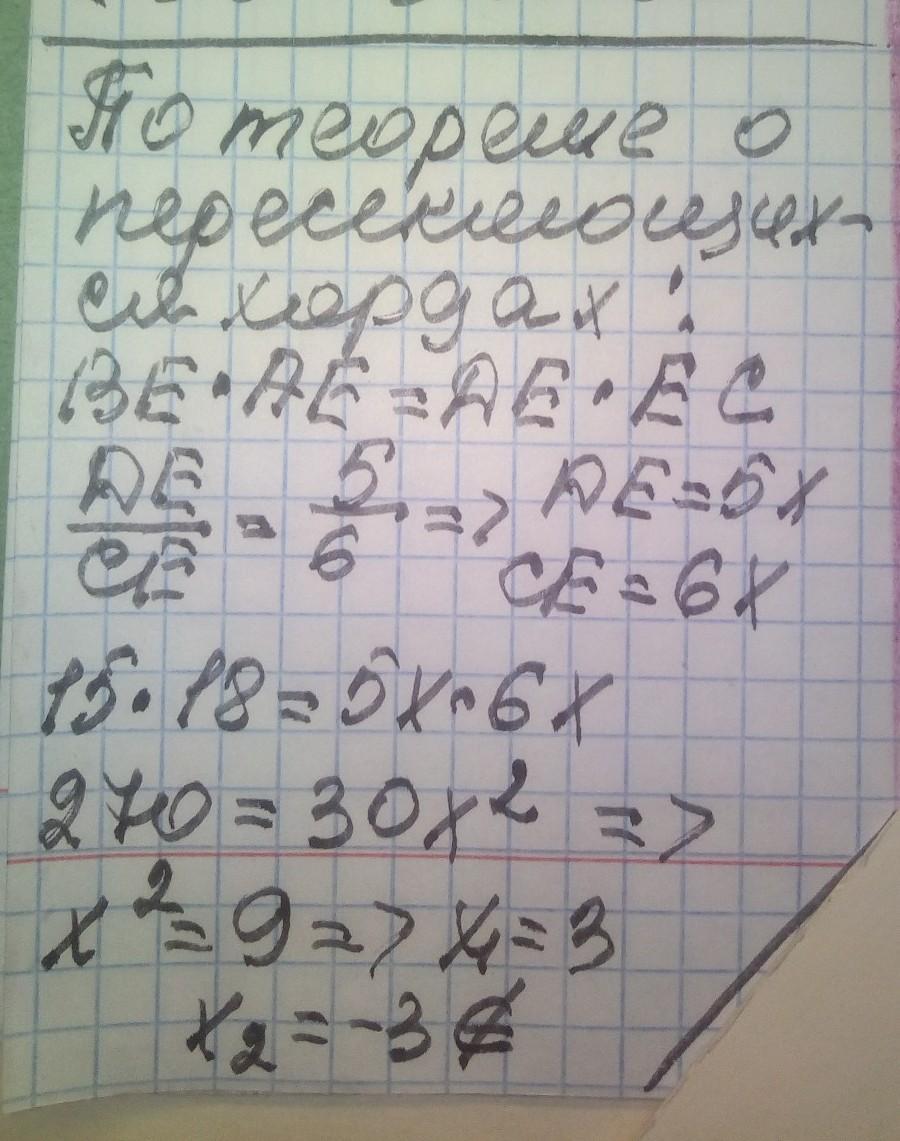 По теореме о
пересекающих-
ся хордах :
BE · AE = DE · EC
DE/CE = 5/6 => DE = 5x
CE = 6x
15 · 18 = 5x · 6x
270 = 30x² =>
x² = 9 => x₁ = 3
x₂ = -3 ∉